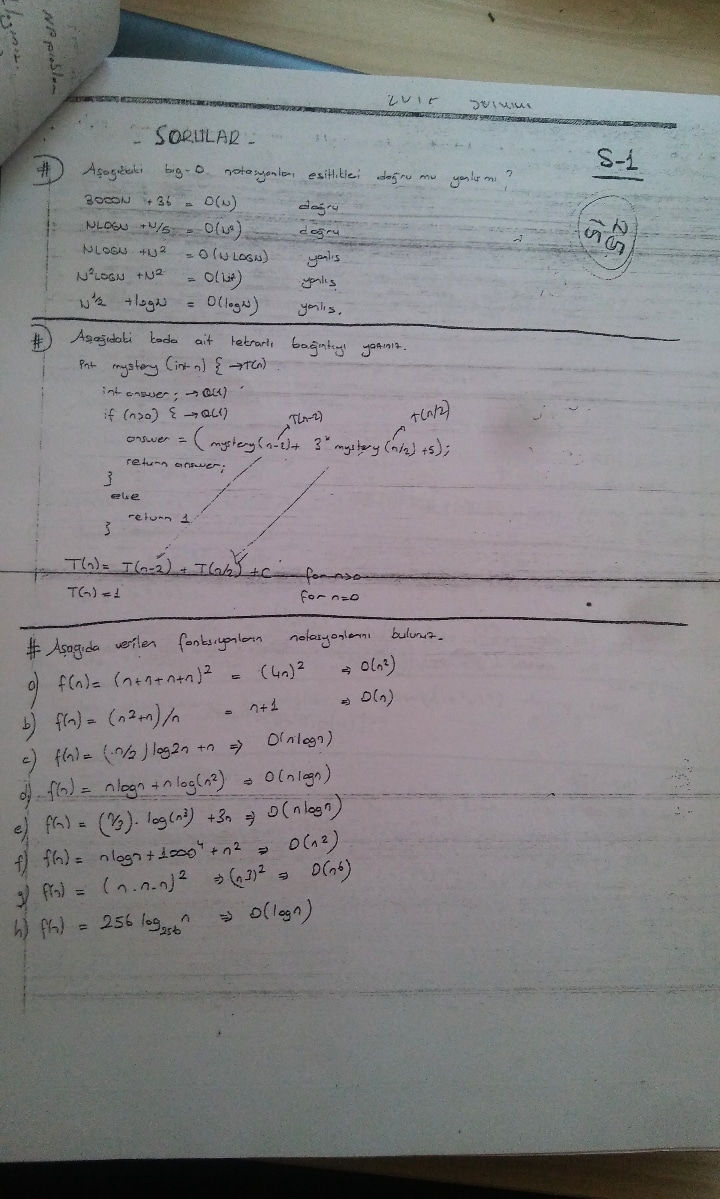 NP problem
- SORULAR -
S-1
# Aşağıdaki big-O notasyonları eşitlikleri doğru mu yanlış mı?
25
15
3000N + 36 = O(N) doğru
NLOGN + N/5 = O(N²) doğru
NLOGN + N² = O(NLOGN) yanlış
N²LOGN + N² = O(N²) yanlış
N^1/2 + logN = O(logN) yanlış.
# Aşağıdaki koda ait tekrarlı bağıntıyı yazınız.
int mystery (int n) { → T(n)
int answer; → O(1)
if (n>0) { → O(1)
T(n-2) T(n/2)
answer = ( mystery(n-2) + 3* mystery(n/2) +5);
return answer;
}
else
return 1
}
T(n) = T(n-2) + T(n/2) + C for n>0
T(n) = 1 for n=0
# Aşağıda verilen fonksiyonların notasyonlarını bulunuz.
a) f(n) = (n+n+n+n)² = (4n)² ⇒ O(n²)
b) f(n) = (n²+n)/n = n+1 ⇒ O(n)
c) f(n) = (n/2) log2n + n ⇒ O(nlogn)
d) f(n) = nlogn + nlog(n²) ⇒ O(nlogn)
e) f(n) = (n/3). log(n³) + 3n ⇒ O(nlogn)
f) f(n) = nlogn + 1000⁴ + n² ⇒ O(n²)
g) f(n) = (n.n.n)² ⇒ (n³)² ⇒ O(n⁶)
h) f(n) = 256 log₂₅₆n ⇒ O(logn)